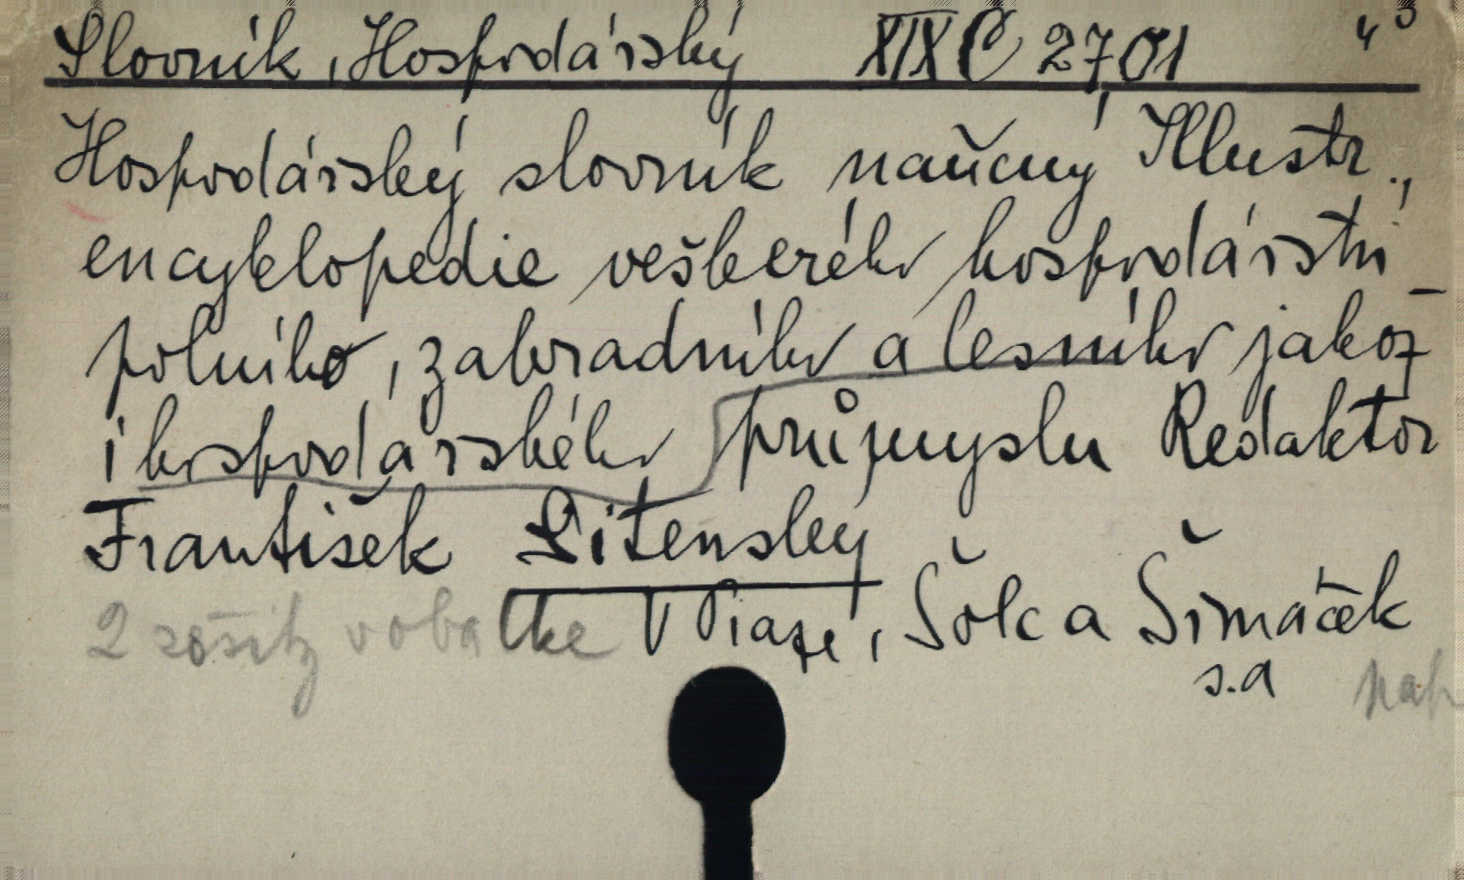 Slovník, Hospodářský XIX C 2701
Hospodářský slovník naučný Illustr.,
encyklopedie veškerého hospodářství
polního, zahradního a lesního jakož
i hospodářského průmyslu Redaktor
František Litenský
2 sešity v obálke V Praze, Šolc a Šimáček
s.a